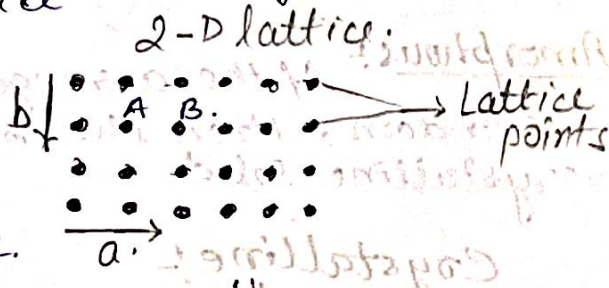 2-D lattice.
b A B. Lattice
points
a.